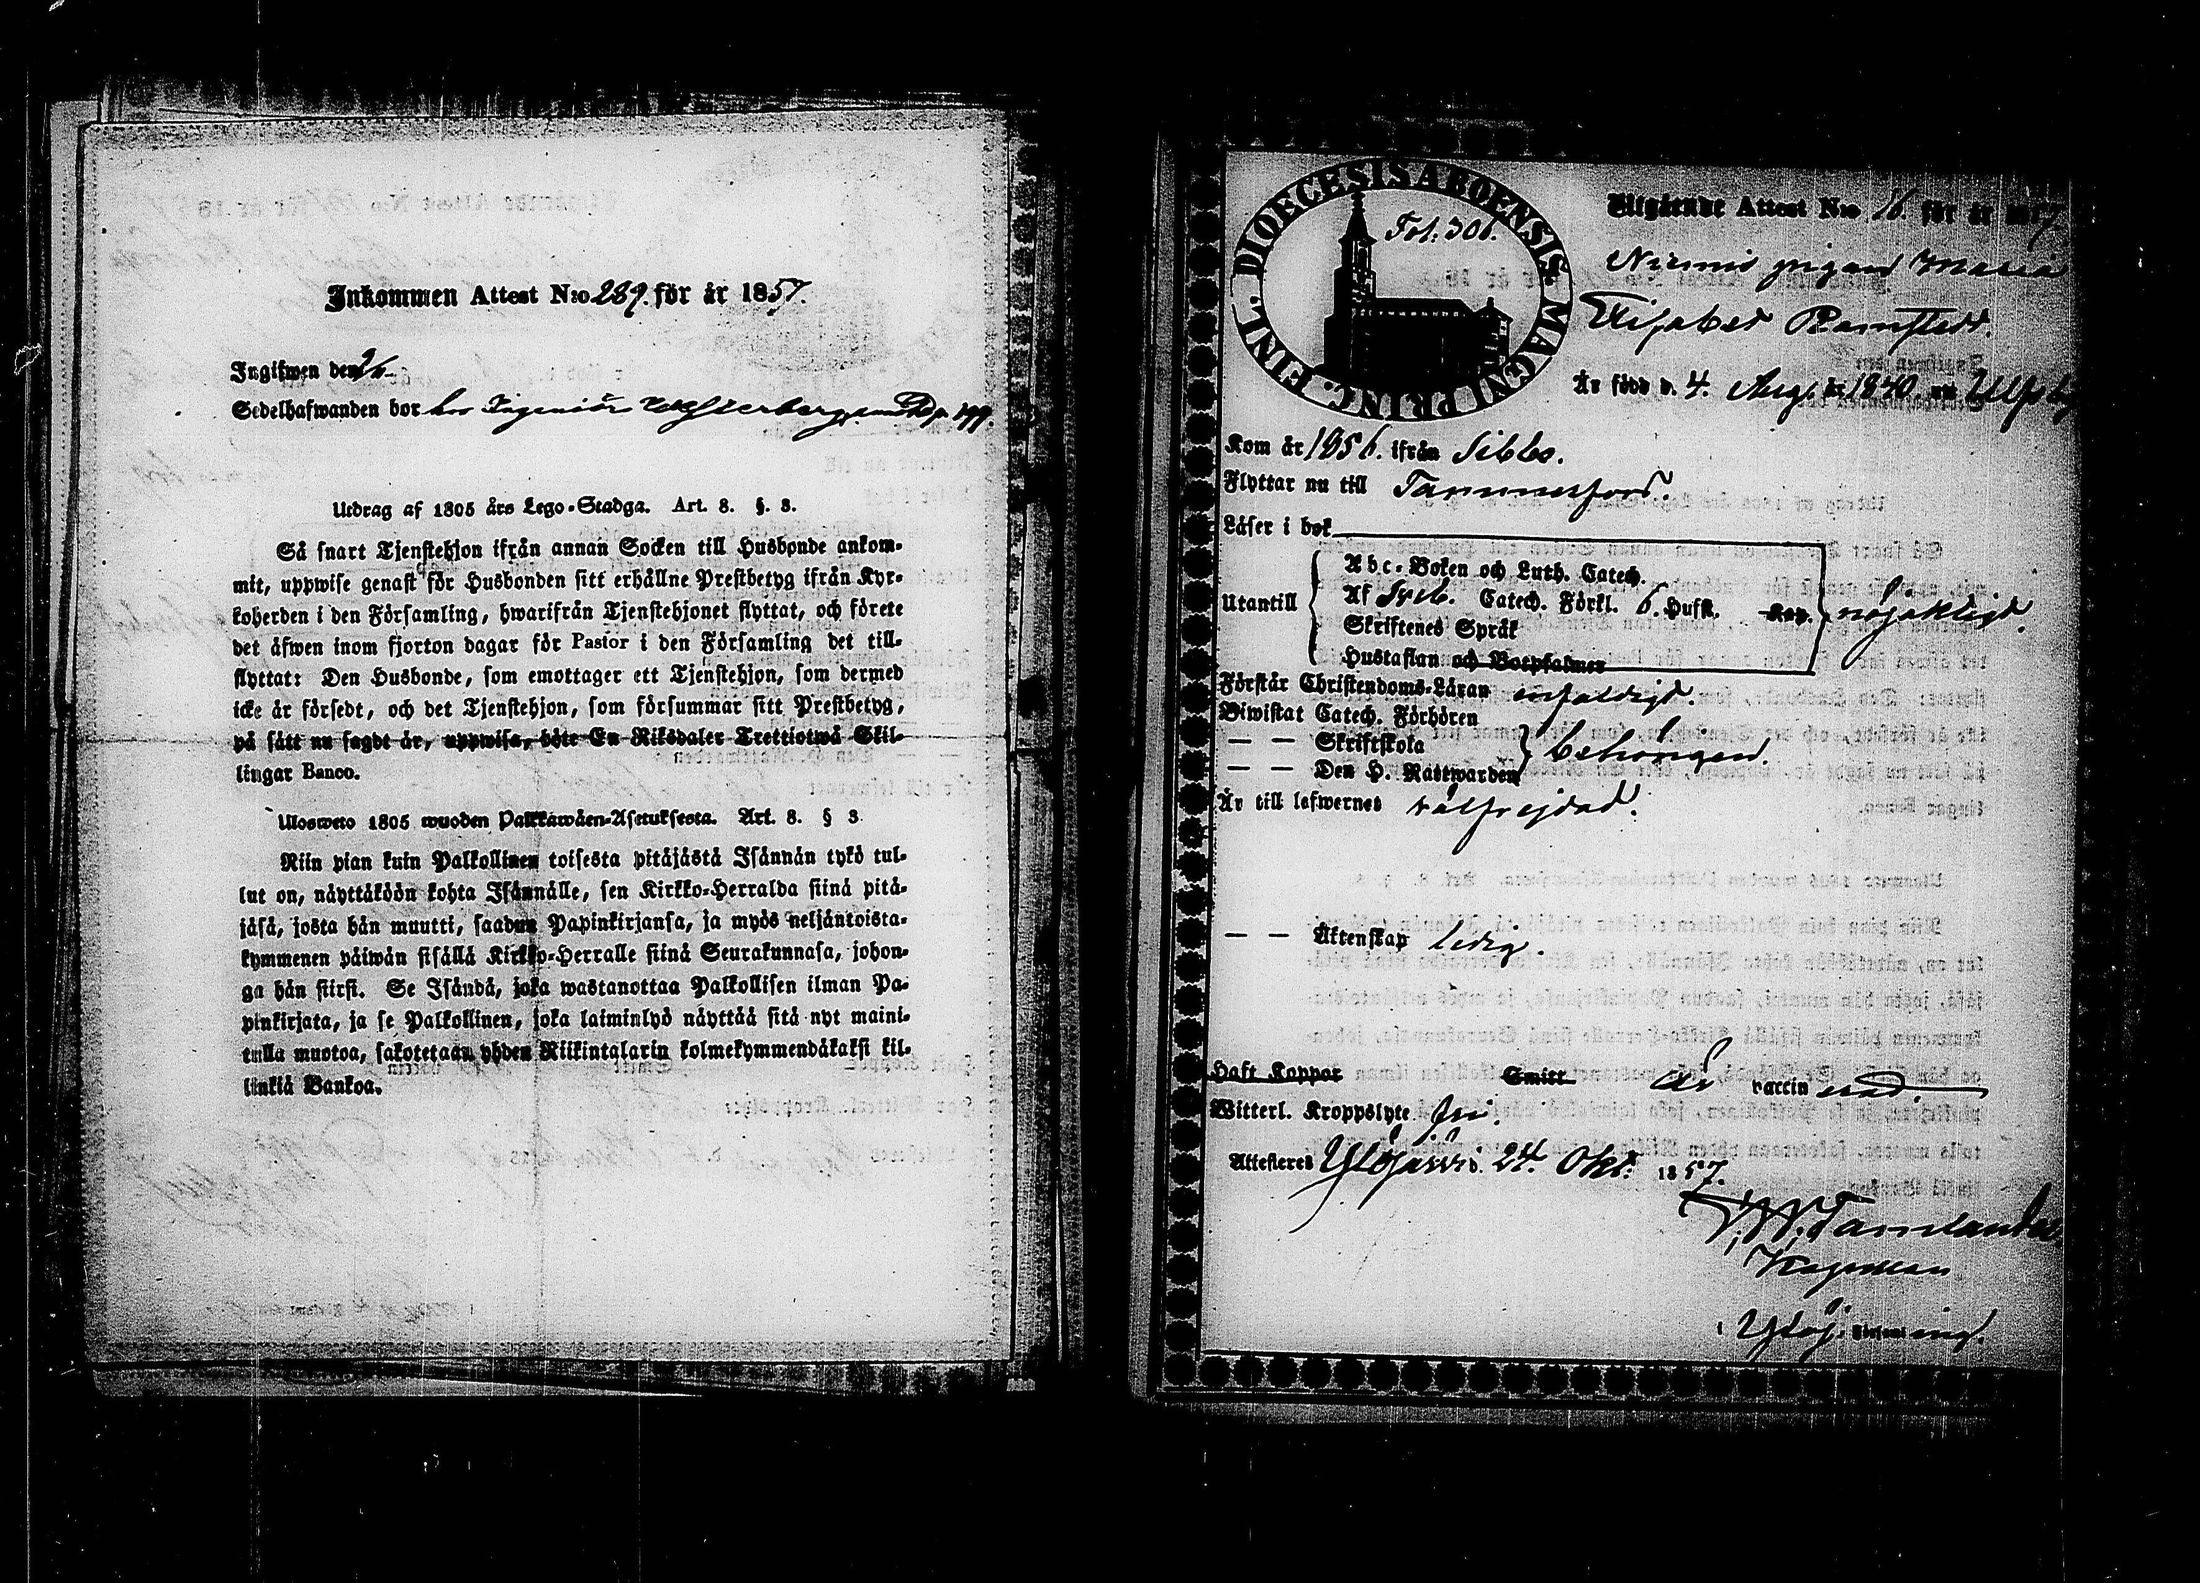 Inkommen Attest N:o 289. för år 1857.
Ingifwen den
Sedelhafwanden bor hos Ingeniör
Utdrag af 1805 års Lego-Stadga. Art. 8. §. 3.
Så snart Tjenstehjon ifrån annan Socken till Husbonde ankom-
mit, uppwise genast för Husbonden sitt erhållne Prestbetyg ifrån Kyr-
koherden i den Församling, hwarifrån Tjenstehjonet flyttat, och förete
det äfwen inom fjorton dagar för Pastor i den Församling det till-
flyttat: Den Husbonde, som emottager ett Tjenstehjon, som dermed
icke är försedt, och det Tjenstehjon, som försummar sitt Prestbetyg,
på sätt nu sagdt är, uppwisa, böte En Riksdaler Trettiotwå Skil-
lingar Banco.
Ulosweto 1805 wuoden Palkkawäen-Asetuksesta. Art. 8. § 3.
Niin pian kuin Palkollinen toisesta pitäjästä Isännän tykö tul-
lut on, näyttäköön kohta Isännälle, sen Kirkko-Herralda siinä pitä-
jäsä, josta hän muutti, saadun Papinkirjansa, ja myös neljäntoista-
kymmenen päiwän sisällä Kirkko-Herralle siinä Seurakunnasa, johon-
ga hän siirsi. Se Isändä, joka wastanottaa Palkollisen ilman Pa-
pinkirjata, ja se Palkollinen, joka laiminlyö näyttää sitä nyt maini-
tulla muotoa, sakotetaan yhden Riikintalarin kolmekymmendäkaksi kil-
linkiä Bankoa.
DIOECESIS ABOENSIS MAGNI PRINC. FINL.
Fol. 306.
Utgående Attest N:o 16. för år 1857.
pigan Maria
Elisabet Ramstedt.
Är född d. 4. Aug. år 1840 uti Ulfsby
Kom år 1856. ifrån Sibbo.
Flyttar nu till Tammerfors.
Läser i bok
Abc-Boken och Luth. Catech.
Utantill Af Sveb. Catech. Förkl. 6. Hufst. Kap. nöjaktigt.
Skriftenes Språk
Hustaflan och Botpsalmer
Förstår Christendoms-Läran enfaldigt.
Biwistat Catech. Förhören
— — Skriftskola behörigen.
— — Den H. Nattwarden
Är till lefwernet välfrejdad.
— — Äktenskap ledig.
Haft Koppor Smitt Är vaccinerad.
Witterl. Kroppslyte fri.
Attesteras Ylöjärvi d. 24. Okt. 1857.
Kapellan
i Ylöj. Församling.